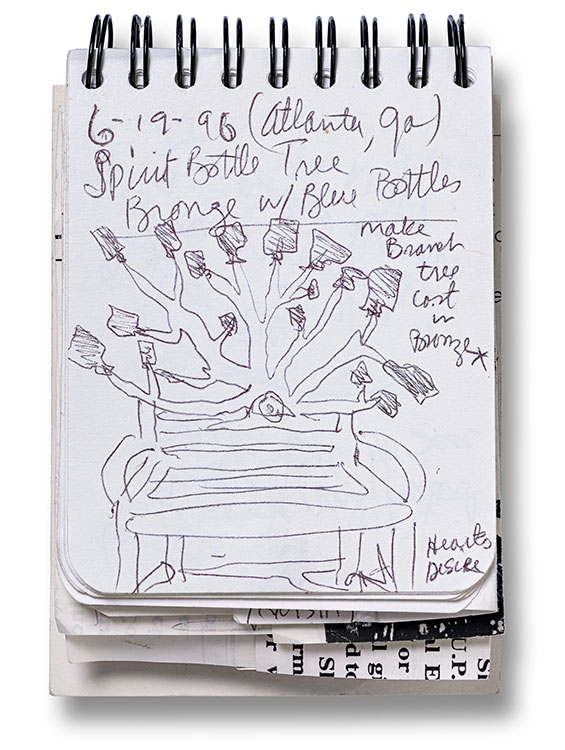 6-19-96 (Atlanta, ga)
Spirit Bottle Tree
Bronze w/ Blue Bottles
make
Branch
tree
Cast
in
Bronze*
Hearts
DESIRE
U.P.
Si
al E
or
l gi
d to
SH
rm